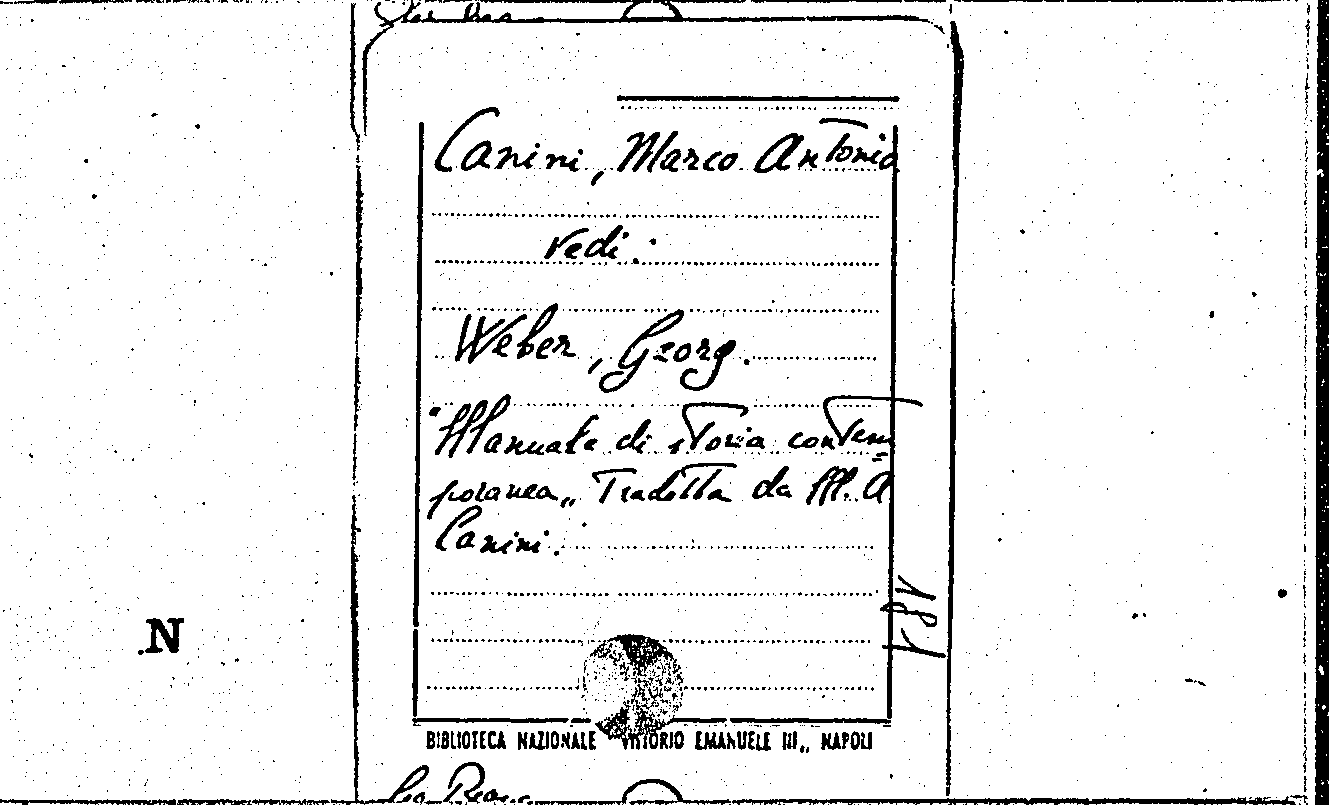 Canini, Marco Antonio
vedi:
Weber, Georg.
"Manuale di storia contem=
poranea„ Tradotta da M. A
Canini.
N
BIBLIOTECA NAZIONALE "VITTORIO EMANUELE III„ NAPOLI